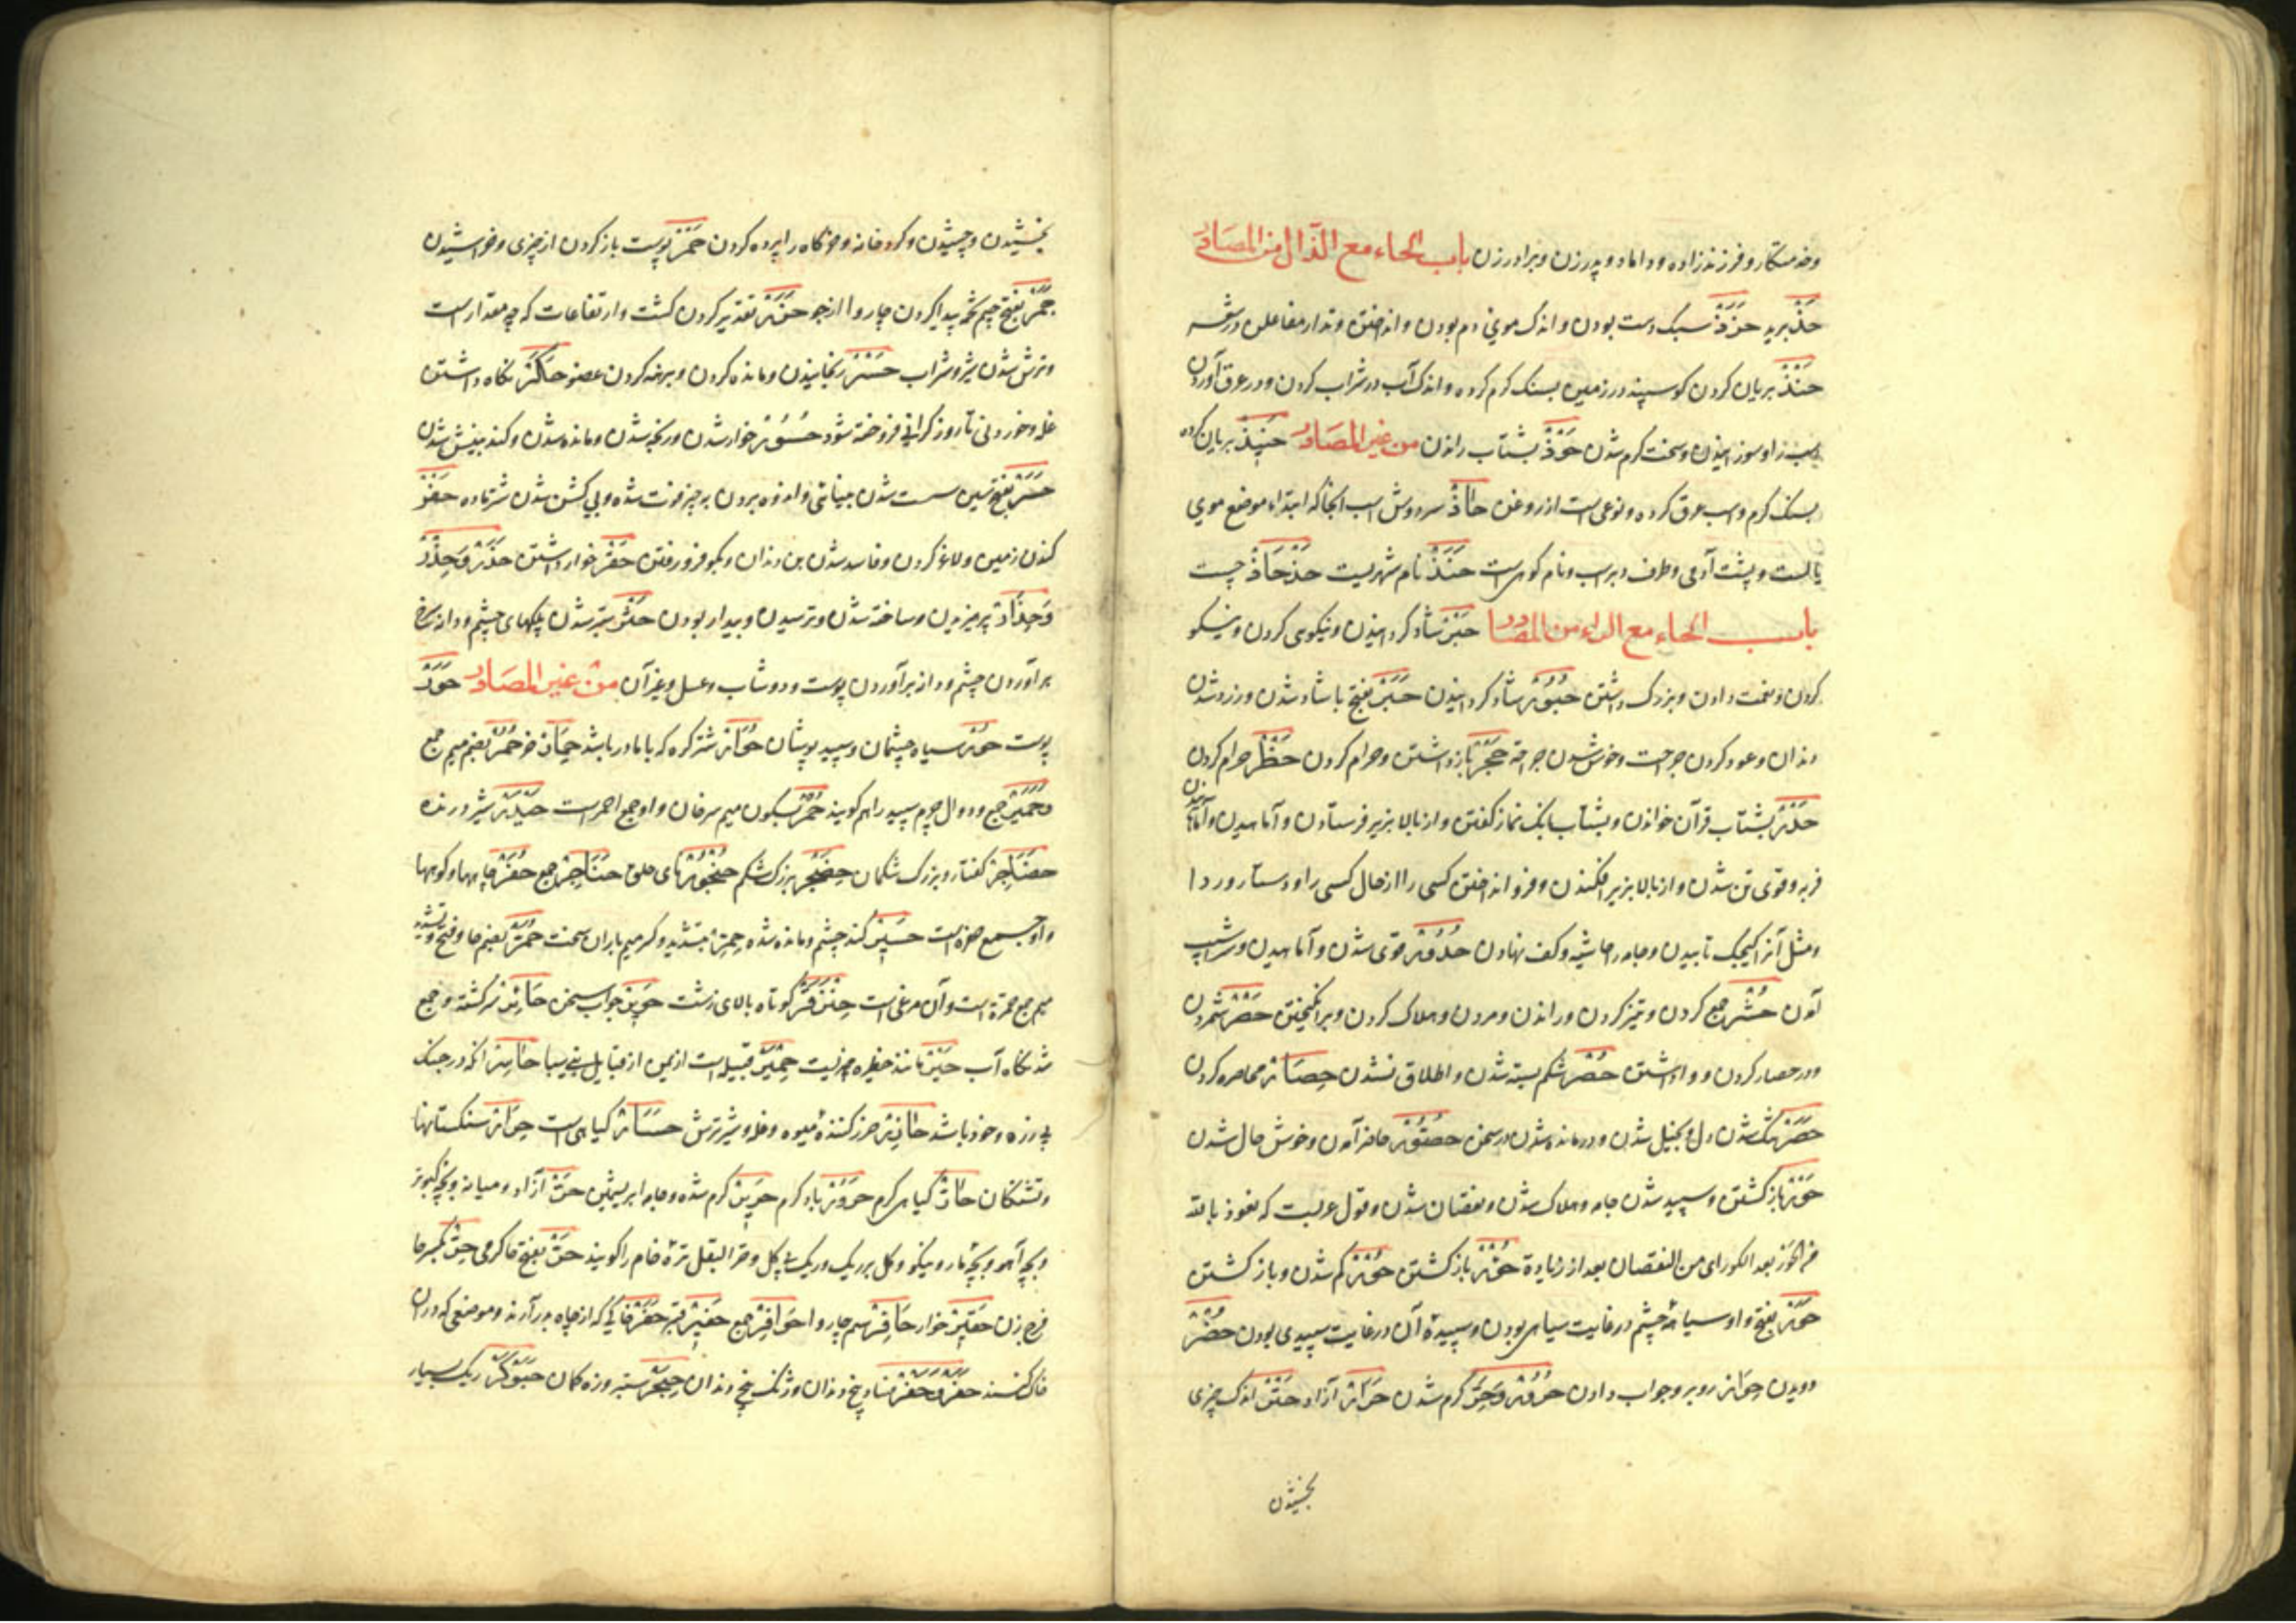 وخدمتکار و فرزندزاده و داماد و پدر زن و برادر زن باب الحاء مع الذال من المصادر
حذ برید حذذ سبک دست بودن و اندک موی دم بودن و انداختن وتد از مفاعلن در شعر
حنذ بریان کردن کوسپند در زمین بسنک کرم کرده و اندک آب در شراب کردن و در عرق آوردن
اسب را و سوزانیدن و سخت کرم شدن حوذ بشتاب راندن من غیر المصادر حنیذ بریان کرده
بسنک کرم و اسب عرق کرده و نوعی است از روغن حاذ سردوش اسب آنجا که ابتداء موضع موی
یال است و پشت آدمی و طرف دبر اسب و نام کوهی است حنذ نام شهریست حذحاذ چست
باب الحاء مع الراء من المصادر حبر شاد کردانیدن و نیکوی کردن و نیکو
کردن و نعمت دادن و بزرک داشتن حبور شاد کردانیدن حبر بفتح با شاد شدن و زرد شدن
دندان و عود کردن جراحت و خوش شدن جراحة حجر بازداشتن و حرام کردن حظر حرام کردن
حدر بشتاب قرآن خواندن و بشتاب بانک نماز کفتن و از بالا بزیر فرستادن و آماهیدن و آماهانیدن
فربه و قوی تن شدن و از بالا بزیر افکندن و فرو انداختن کسی را از حال کسی را و دستار و ردا
و مثل آنرا کیجیک تابیدن و جامه را حاشیه و کف نهادن حدور قوی شدن و آماهیدن و در شیب
آمدن حشر جمع کردن و تمیز کردن و راندن و مردن و هلاک کردن و برانکیختن حصر شمردن
و در حصار کردن و واداشتن حصر شکم بسته شدن و اطلاق نشدن حصار محاصره کردن
حصر تنک شدن دل و بخیل شدن و درمانده شدن در سخن حضور حاضر آمدن و خوش حال شدن
حور باز کشتن و سپید شدن جامه و هلاک شدن و نقصان شدن و قول عربست که نعوذ بالله
من الحور بعد الکور ای من النقصان بعد از زیادة حور باز کشتن حور کم شدن و باز کشتن
حور بفتح واو سیاهئ چشم در غایت سیاهی بودن و سپیدئ آن در غایت سپیدی بودن حضر
دویدن حوار روبرو جواب دادن حرور و حر کرم شدن حرار آزاد حتر اندک چیزی
بخشیدن
بخشیدن و چشیدن و کرد خانه و خرکاه را پرده کردن حمر پوست باز کردن از چیزی و خراشیدن
حمر بفتح میم تخمه پیدا کردن چاروا از جو حزر تقدیر کردن کشت و ارتفاعات که چه مقدار است
و ترش شدن شیر و شراب حسر رنجانیدن و مانده کردن و برهنه کردن عضو حکر نکاه داشتن
غله و خوردنی تا روز کرانی فروخته شود حسور خوار شدن و رنجه شدن و مانده شدن و کند بینش شدن
حسر بفتح سین سست شدن بینائی و اندوه بردن بر چیز فوت شده و بی کشن شدن شتر ماده حفر
کندن زمین و لاغر کردن و فاسد شدن بن دندان و بکو فرو رفتن حقر خوار داشتن حذر و حذر
و حذار پرهیزیدن و ساخته شدن و ترسیدن و بیدار بودن حثر ستبر شدن پلکهای چشم و دانه سرخ
برآوردن چشم و دانه برآوردن پوست و دوشاب و عسل و غیر آن من غیر المصادر حور
پوست حور سیاه چشمان و سپید پوشان حوار شتر کره که با مادر باشد حمار خر حمر بضم میم جمع
حمیر جمع و دوال چرم سپید را هم کویند حمر بسکون میم سرخان و او جمع احمر است حیدر شیر درنده
حضاجر کفتار و بزرک شکمان حضجر بزرک شکم حنجور نای حلق حناجر جمع حفر چاهها و کوهها
و او جمع حفره است حسیر کند چشم و مانده شده حمر بتشدید و کسر میم باران سخت حمر بضم حا و فتح و تشدید
میم جمع حمرة است و آن مرغی است حنزقر کوتاه بالای زشت حویر جواب سخن حائر سرکشته و جمع
شدنکاه آب حیر مانند حظیره چیزیست حمیر قبیله است از یمن از قبایل بنی سبا حاسر آنکه در جنک
بی زره و خود باشد حازر حرز کننده میوه و غله و شیر ترش حسار کیاهی است حرار سنکستانها
و تشنکان حار کیاهی کرم حرور باد کرم حریر کرم شده و جامه ابریشمین حر آزاد و میانه و بچه کبوتر
و بچه آهو و بچه مار و نیکو و کل بر ریک و ریک بی کل و حر البقل تره خام را کویند حر بفتح حا کرمی حر بکسر حا
فرج زن حقیر خوار حافر سم چاروا حوافر جمع حفیر قبر حفر خاکی که از چاه بدر آرند و موضعی که در آن
خاک کنند حفر و حفر فساد بیخ دندان و زنک بیخ دندان حبجر ستبر و زه کمان حبوکر ریک بسیار